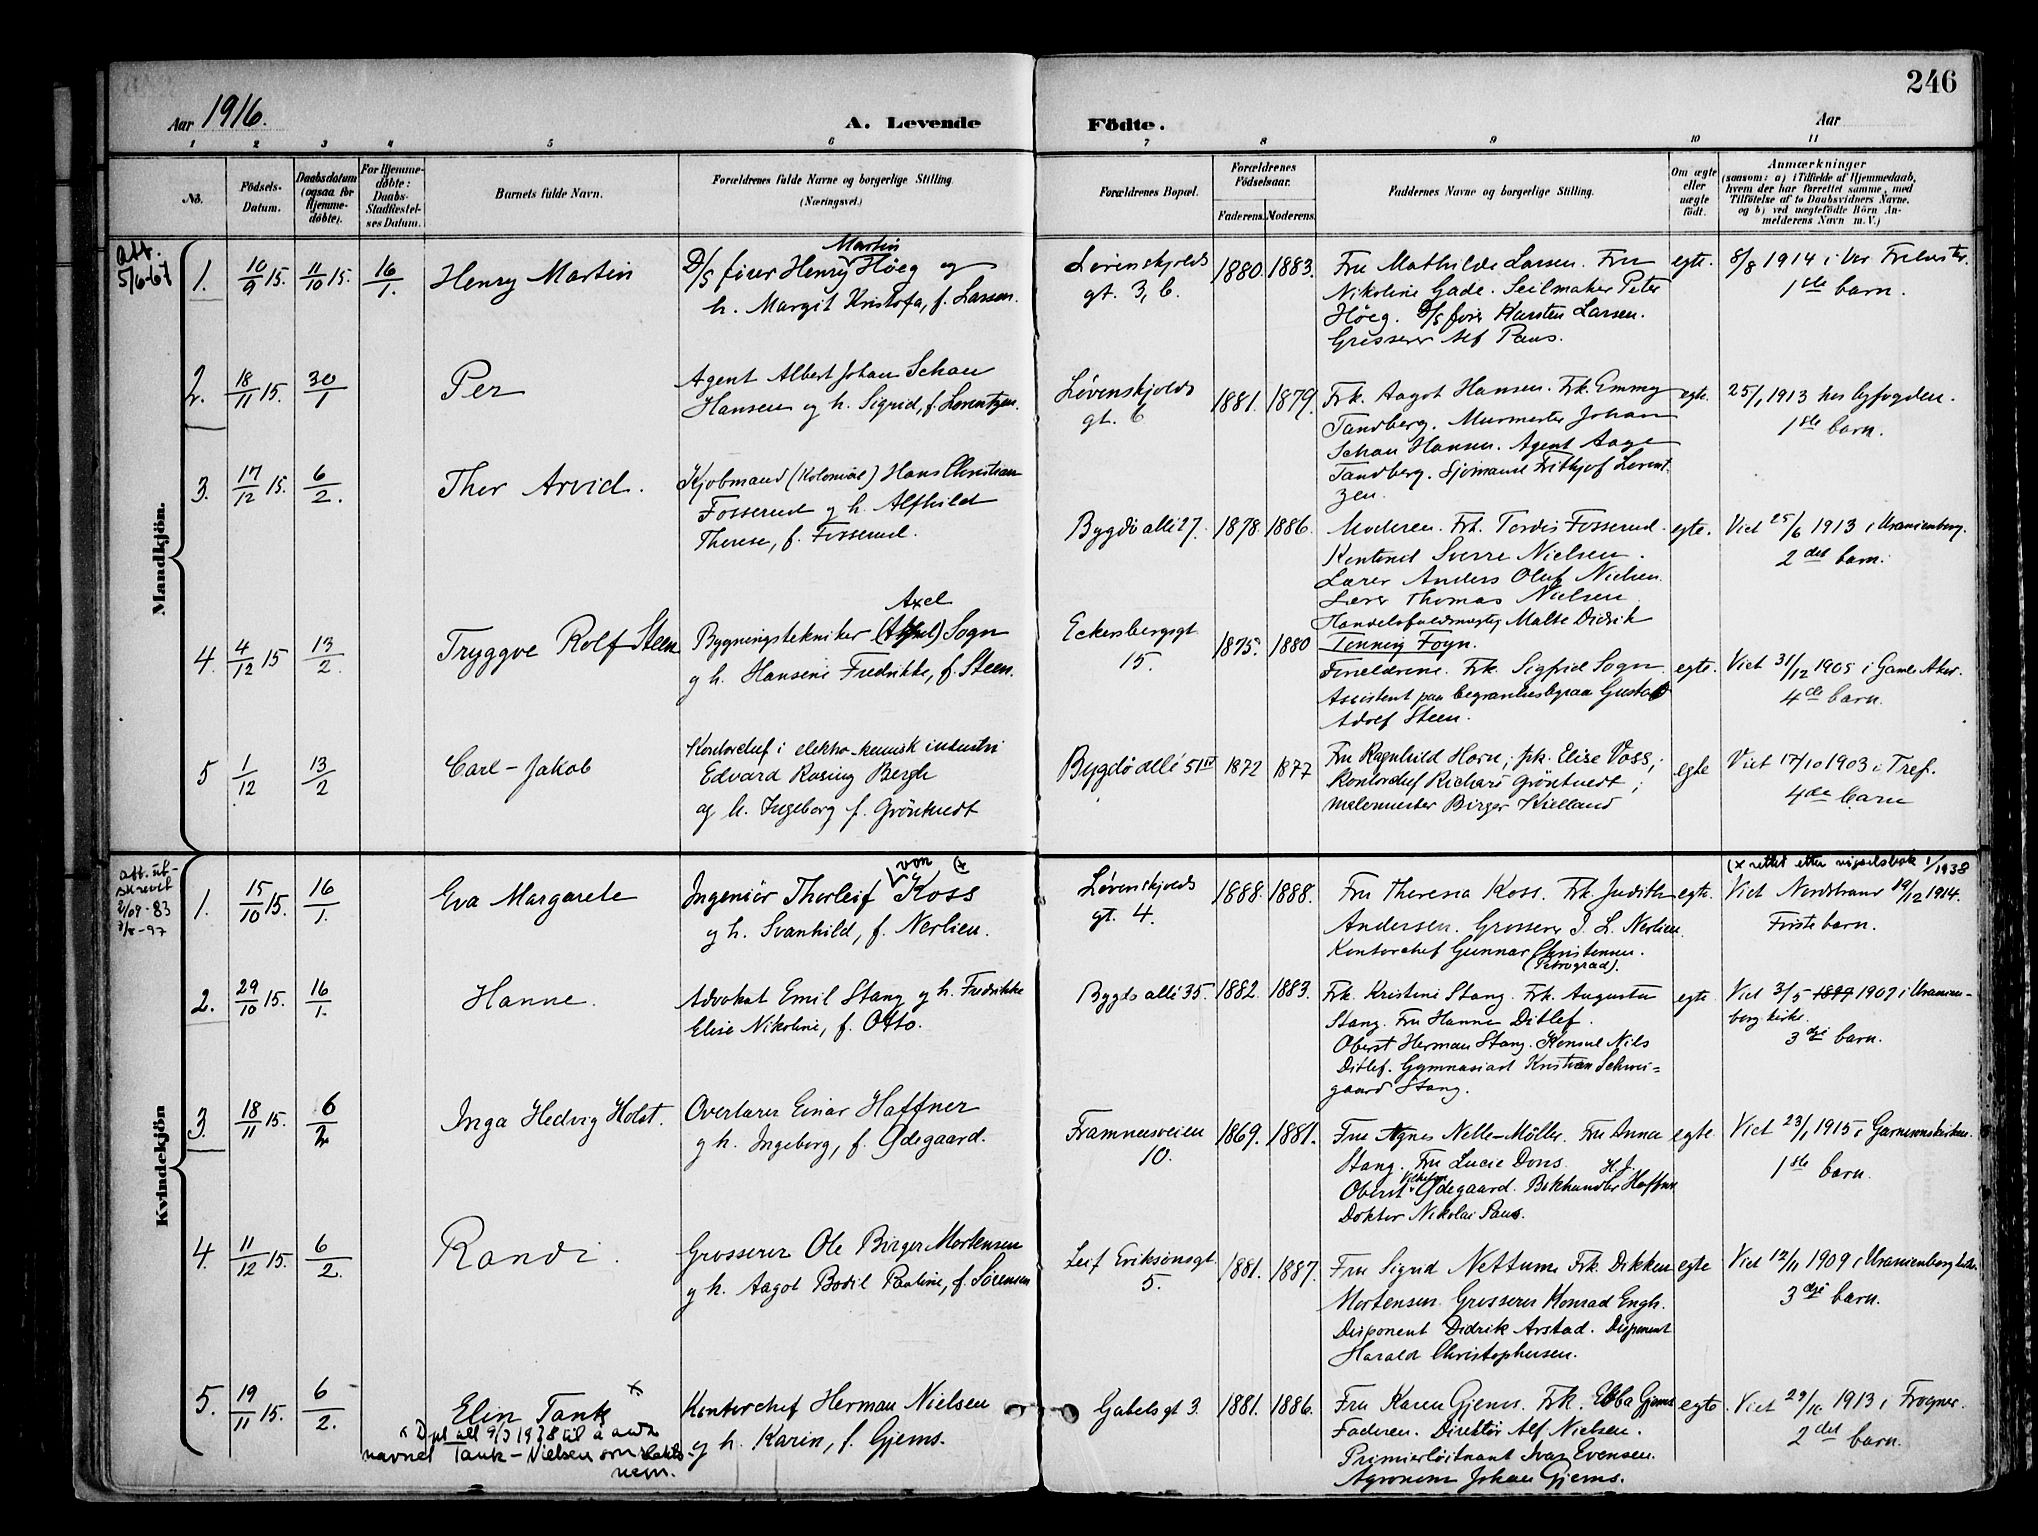 246
Aar 1916.
A. Levende Födte.
Aar
1 2 3 4 5 6 7 8 9 10 11
No.
Födsels-Datum.
Daabsdatum (ogsaa for Hjemme-døbte).
For Hjemme-døbte: Daabs-Stadfæstel-ses Datum.
Barnets fulde Navn.
Forældrenes fulde Navne og borgerlige Stilling. (Næringsvei.)
Forældrenes Bopæl.
Forældrenes Födselsaar.
Faderens. Moderens.
Faddernes Navne og borgerlige Stilling.
Om ægte eller uægte födt.
Anmærkninger
(saasom: a) i Tilfælde af Hjemmedaab,
hvem der har forrettet samme, med
Tilföielse af to Daabsvidners Navne,
og b) ved uægtefödte Börn An-
melderens Navn m. V.)
Mandkjön.
Att.
5/6-67
1. 10/9 15. 11/10 15. 16/1. Henry Martin
Martin
D/S fører Henry Høeg og
h. Margit Kristofa, f. Larsen.
Løvenskjolds
gt. 3, b.
1880. 1883.
Fru Mathilde Larsen. Fru
Nikoline Gade. Seilmaker Peter
Høeg. D/S fører Karsten Larsen.
Grosserer Alf Paus.
egte.
8/8 1914 i Vor Frelsers k.
1ste barn.
2. 18/11 15. 30/1 Per
Agent Albert Johan Schau
Hansen og h. Sigrid, f. Lorentzen.
Løvenskjolds
gt. 6
1881. 1879.
Frk. Aagot Hansen. Frk. Emmy
Tandberg. Murmester Johan
Schau Hansen. Agent Aage
Tandberg. Sjømand Frithjof Lorent
zen.
egte.
25/1 1913 hos byfogden.
1ste barn.
3. 17/12 15. 6/2. Thor Arvid.
Kjøbmand (Kolonial) Hans Christian
Fosserud og h. Alfhild
Therese, f. Fosserud.
Bygdø allé 27.
1878. 1886.
Moderen. Frk. Tordis Fosserud.
Kontorist Sverre Nielsen.
Lærer Anders Oluf Nielsen.
Lærer Thomas Nielsen
egte.
Viet 25/6 1913 i Uranienborg.
2det barn.
4. 4/12 15 13/2. Tryggve Rolf Steen
Axel
Bygningstekniker (Aksel) Sogn
og h. Hansine Fredrikke, f. Steen.
Eckersbergsgt
15.
1875. 1880
Handelsfuldmægtig Malte Didrik
Tønning Fogn.
Forældrene. Frk. Sigfrid Sogn.
Assistent paa begravelsesbyraa Gustav
Adolf Steen.
egte.
Viet 31/12 1905 i Gamle Aker.
4de barn.
5 1/12 13/2 Carl-Jakob
Kontorchef i elektro-kemisk industri
Edvard Rosing Bergh
og h. Ingeborg f. Gröntvedt
Bygdö allé 51 IV
1872 1877
Fru Ragnhild Horn; frk. Elise Voss;
Kontorchef Richard Gröntvedt;
malermester Birger Kielland
egte
Viet 17/10 1903 i Tref.
4de barn
Kvindekjön
Att. ut-
skrevet
2/09-83
7/8-97
1. 15/10 15. 16/1. Eva Margarete
von (x
Ingeniør Thorleif Koss
og h. Svanhild, f. Nerlien.
Løvenskjolds
gt. 4.
1888. 1888.
Fru Theresia Koss. Frk. Judith
Andersen. Grosserer J. L. Nerlien.
Kontorchef Gunnar Christensen.
(Petrograd).
egte.
(x rettet etter vigselsbok 1/1938
Viet Nordstrand 19/12 1914.
Første barn.
2. 29/10 15. 16/1. Hanne.
Advokat Emil Stang og h. Fredrikke
Elise Nikoline, f. Otto.
Bygdø allé 35.
1882. 1883.
Frk. Kristine Stang. Frk. Augusta
Stang. Fru Hanne Ditlef.
Oberst Herman Stang. Konsul Nils
Ditlef. Gymnasiast Kristian Schwei-
gaard Stang.
egte
Viet 3/5 1899 1907 i Uranien-
borg kirke.
3dje barn.
3. 18/11 15. 6/2 Inga Hedvig Holst.
Overlærer Einar Haffner
og h. Ingeborg, f. Ødegaard.
Framnesveien
10.
1869. 1881.
Fru Agnes Nelle-Møller. Fru Anna
Stang. Fru Lucie Dons. H. J.
Oberst Vilhelm Ødegaard. Bokhandler Haffner
Doktor Nikolai Paus.
egte
Viet 23/1 1915 i Garnisonskirken.
1ste barn.
4. 11/12 15. 6/2. Randi.
Grosserer Ole Birger Mortensen
og h. Aagot Bodil Pauline, f. Sørensen
Leif Eriksonsgt.
5.
1881. 1887.
Fru Sigrid Nettum. Frk. Dikken
Mortensen. Grosserer Konrad Engh.
Disponent Didrik Arstad. Disponent
Harald Christophersen.
egte
Viet 12/11 1909 i Uranienborg kirke.
3dje barn.
5. 19/11 15. 6/2. Elin Tank x
x D pl all 9/3 1938 til å anta
navnet Tank-Nielsen som slekts
navn.
Kontorchef Herman Nielsen
og h. Karin, f. Gjems.
Gabelsgt 3.
1881. 1886.
Fru Karen Gjems. Frk. Ebba Gjems
Faderen. Direktør Alf Nielsen.
Premierløitnant Ivar Evensen.
Agronom Johan Gjems.
egte.
Viet 29/10 1913 i Frogner.
2det barn.